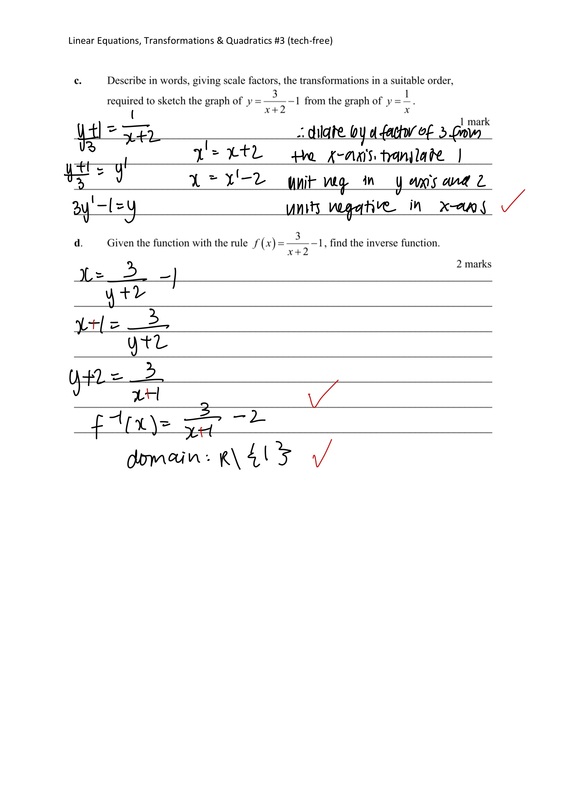 Linear Equations, Transformations & Quadratics #3 (tech-free)
c. Describe in words, giving scale factors, the transformations in a suitable order,
required to sketch the graph of y = 3/(x+2) − 1 from the graph of y = 1/x .
1 mark
(y+1)/3 = 1/(x+2)
(y+1)/3 = y'
3y' − 1 = y
x' = x+2
x = x' − 2
∴ dilate by a factor of 3 from
the x-axis. translate 1
unit neg in y axis and 2
units negative in x-axis
d. Given the function with the rule f(x) = 3/(x+2) − 1, find the inverse function.
2 marks
x = 3/(y+2) − 1
x+1 = 3/(y+2)
y+2 = 3/(x+1)
f⁻¹(x) = 3/(x+1) − 2
domain: R\{1}